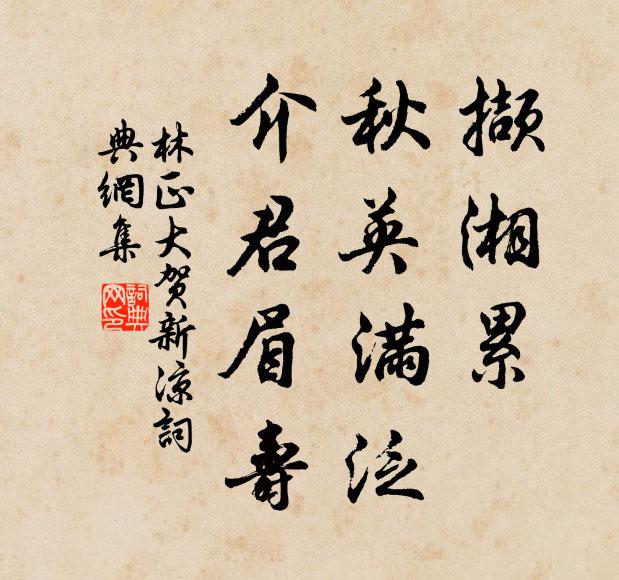 擷湘累
秋英滿泛
介君眉壽
林正大賀新涼詞
典網集
詞典網印